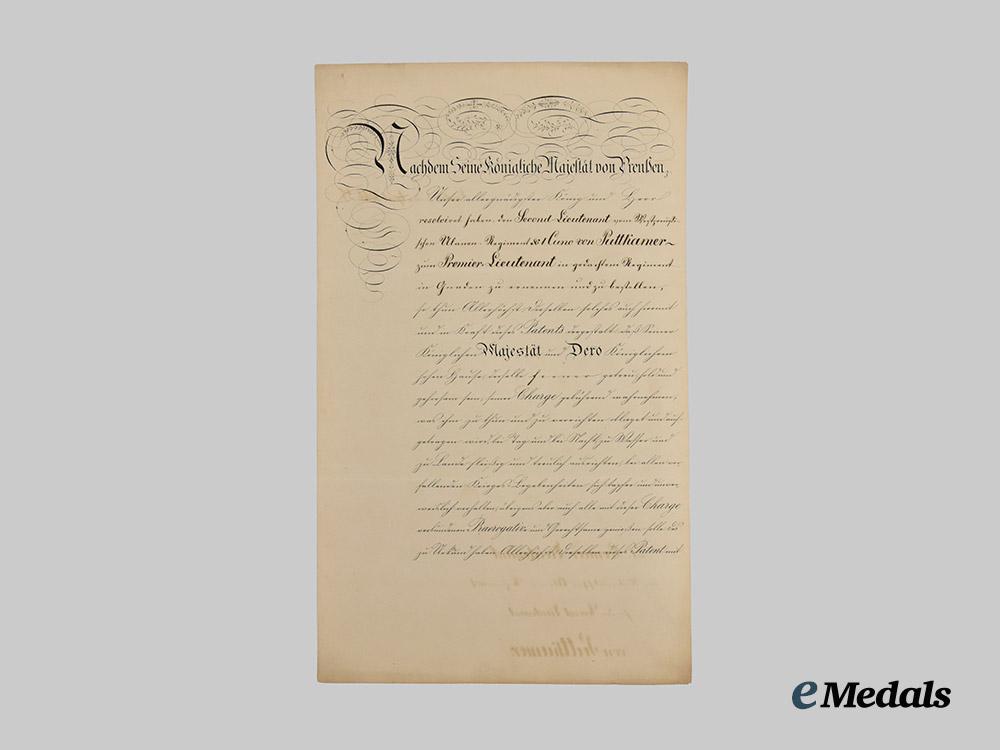 Nachdem Seine Königliche Majestät von Preußen,
Unser allergnädigster König und Herr
resolvirt haben, den Second-Lieutenant vom Westpreußi-
schen Ulanen-Regiment № 1 Cuno von Puttkamer
zum Premier-Lieutenant in gedachtem Regiment
in Gnaden zu ernennen und zu bestellen,
so thun Allerhöchst Dieselben solches auch hiermit
und in Kraft dieses Patents dergestalt, daß Seiner
Königlichen Majestät und Dero Königlichem
hohen Hause, derselbe ferner getreu, hold und
gehorsam sein, seiner Charge gebührend wahrnehmen,
was ihm zu thun und zu verrichten obliegt und auf-
getragen wird, bei Tag und bei Nacht, zu Wasser und
zu Lande fleißig und treulich ausrichten, bei allen vor-
fallenden Krieges-Begebenheiten sich tapfer und unver-
weislich verhalten, übrigens aber auch alle mit dieser Charge
verbundenen Praerogative und Gerechtsame genießen solle. Des
zu Urkund haben Allerhöchst Dieselben dieses Patent mit
von Puttkamer
eMedals